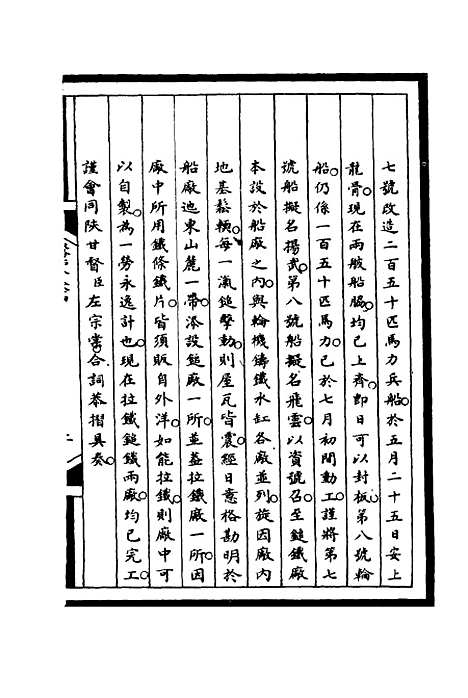 七號改造二百五十匹馬力兵船於五月二十五日安上
龍骨現在兩骸船脇均已上齊即日可以封板第八號輪
船仍係一百五十匹馬力已於七月初間動工謹將第七
號船擬名揚武第八號船擬名飛雲以資號召至鎚鐵廠
本設於船廠之內與輪機鑄鐵水缸各廠並列旋因廠內
地基鬆輭每一瀛鎚擊動則屋瓦皆震經日意格勘明於
船廠迤東山麓一帶添設鎚廠一所並蓋拉鐵廠一所因
廠中所用鐵條鐵片皆須販自外洋如能拉鐵則廠中可
以自製為一勞永逸計也現在拉鐵鎚鐵兩廠均已完工
謹會同陝甘督臣左宗棠合詞恭摺具奏